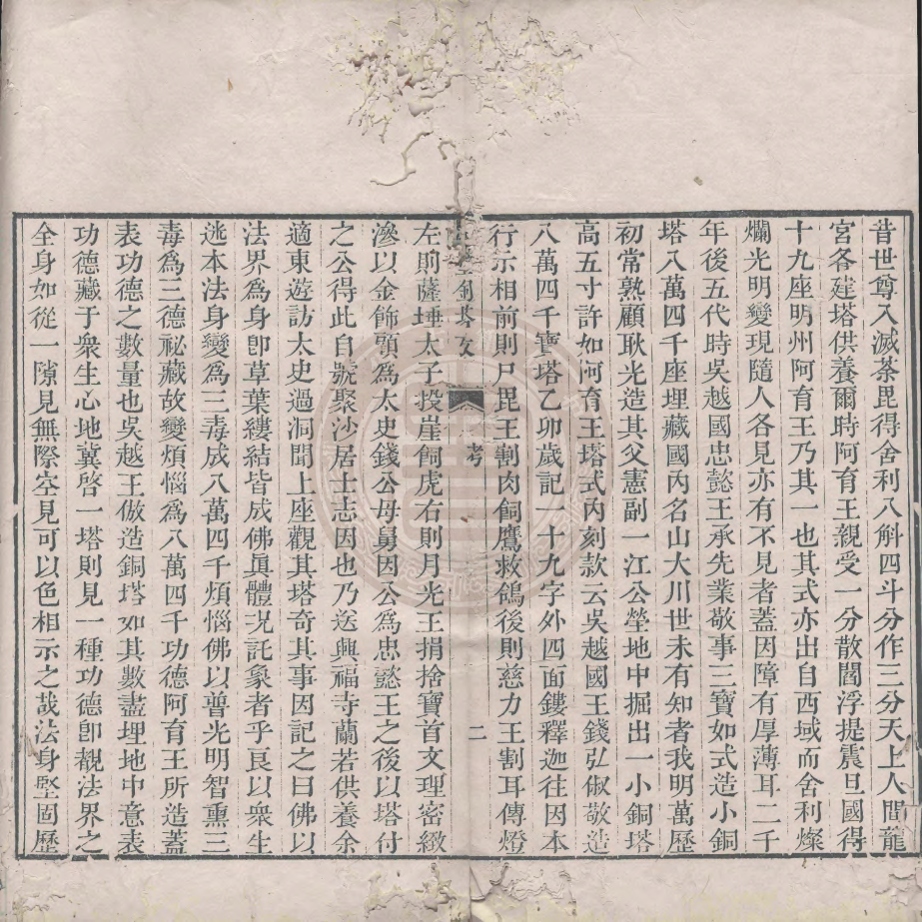 昔世尊入滅茶毘得舍利八斛四斗分作三分天上人間龍
宮各建塔供養爾時阿育王親受一分散閻浮提震旦國得
十九座明州阿育王乃其一也其式亦出自西域而舍利燦
爛光明變現隨人各見亦有不見者蓋因障有厚薄耳二千
年後五代時吳越國忠懿王承先業敬事三寶如式造小銅
塔八萬四千座埋藏國內名山大川世未有知者我明萬歷
初常熟顧耿光造其父憲副一江公塋地中掘出一小銅塔
高五寸許如阿育王塔式內刻款云吳越國王錢弘俶敬造
八萬四千寶塔乙卯歲記一十九字外四面鏤釋迦往因本
行示相前則尸毘王割肉飼鷹救鴿後則慈力王割耳傳燈
塔攷
考
二
左則薩埵太子投崖飼虎右則月光王捐捨寶首文理密緻
滲以金飾頭為太史錢公母舅因公為忠懿王之後以塔付
之公得此自號聚沙居士志因也乃送興福寺蘭若供養余
適東遊訪太史過洞聞上座觀其塔奇其事因記之曰佛以
法界為身卽草葉縷結皆成佛眞體況託象者乎良以衆生
迷本法身變為三毒成八萬四千煩惱佛以普光明智熏三
毒為三德祕藏故變煩惱為八萬四千功德阿育王所造蓋
表功德之數量也吳越王倣造銅塔如其數盡埋地中意表
功德藏于衆生心地冀啓一塔則見一種功德卽觀法界之
全身如從一隙見無際空見可以色相示之哉法身堅固歷